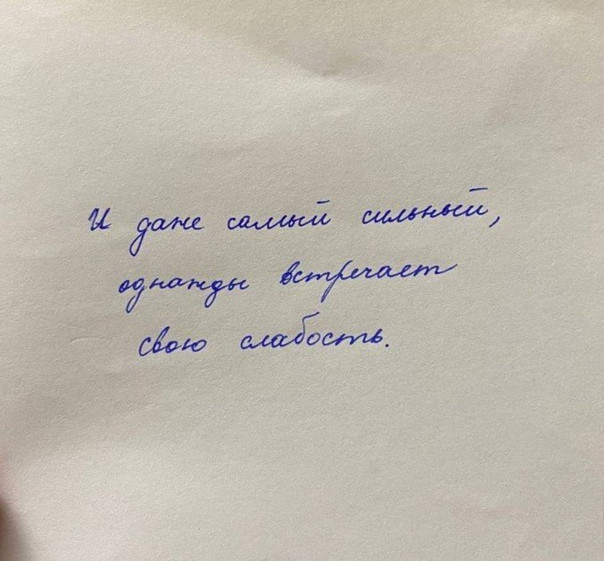 И даже самый сильный,
однажды встречает
свою слабость.